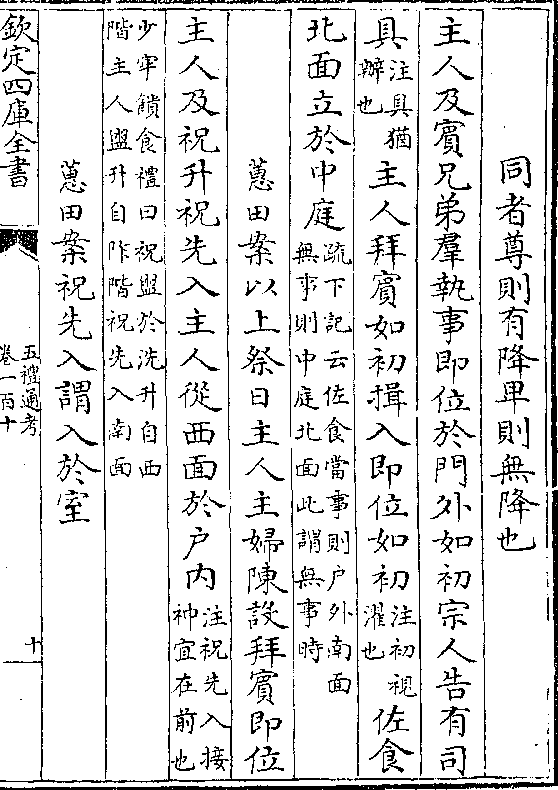 同者尊則有降卑則無降也
主人及賔兄弟羣執事即位於門外如初宗人告有司
具注具猶辦也主人拜賔如初揖入即位如初注初視濯也佐食
北面立於中庭疏下記云佐食當事則户外南面無事則中庭北面此謂無事時
蕙田案以上祭日主人主婦陳設拜賔即位
主人及祝升祝先入主人從西面於户内注祝先入接神宜在前也
少牢饋食禮曰祝盥於洗升自西階主人盥升自阼階祝先入南面
蕙田案祝先入謂入於室
欽定四庫全書
五禮通考
卷一百十
十